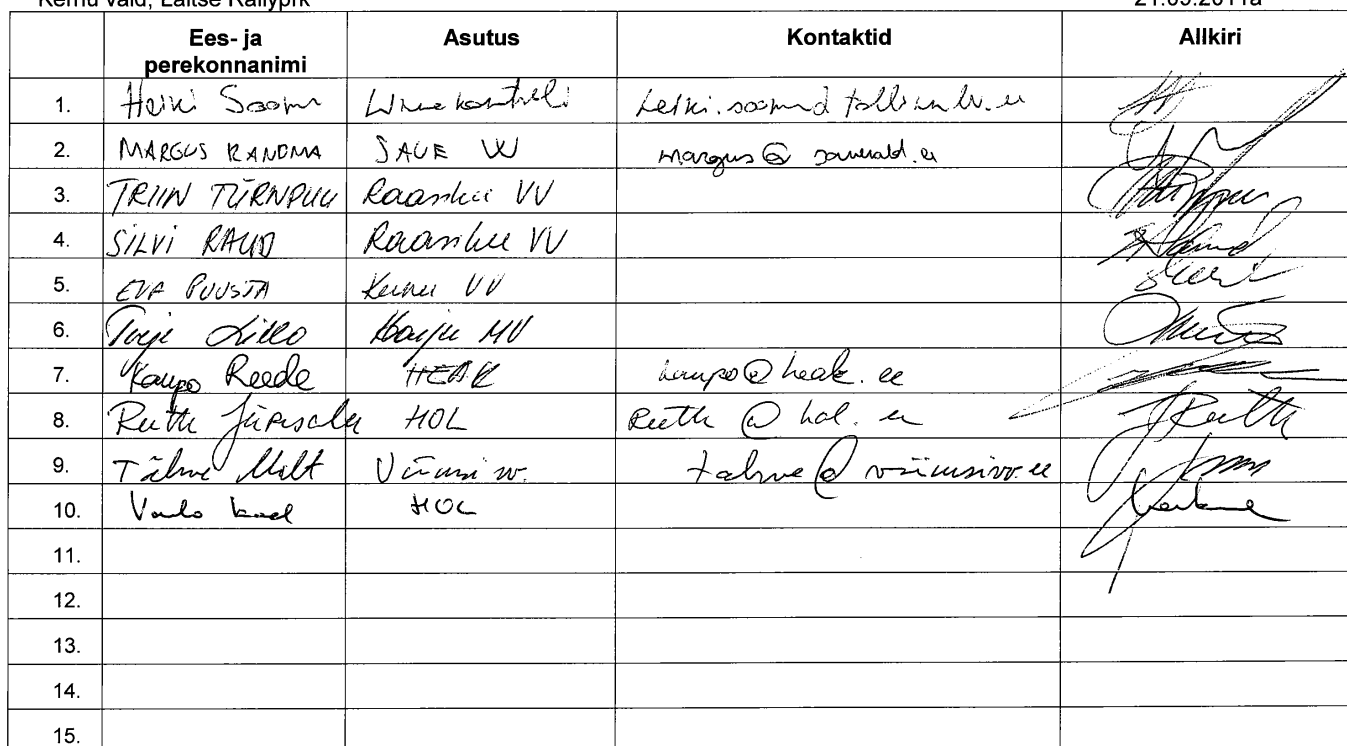 Kernu vald, Laitse Rallyprk 21.09.2011a
Ees- ja perekonnanimi Asutus Kontaktid Allkiri
1. Heiki Soomr
2. MARGUS RANDMA SAUE VV margus@sauevald.ee
3. TRIIN TÜRNPUU Raasiku VV
4. SILVI RAUD Raasiku VV
5. EVA PUUSTA Kernu VV
6. Lillo Harju MV
7. Kaupo Reede HEAK kaupo@heak.ee
8. Ruth Jürisalu HOL Ruth@hol.ee
9. Tähve Milt Viimsi vv. tahve@viimsivv.ee
10. Vallo HOL
11.
12.
13.
14.
15.